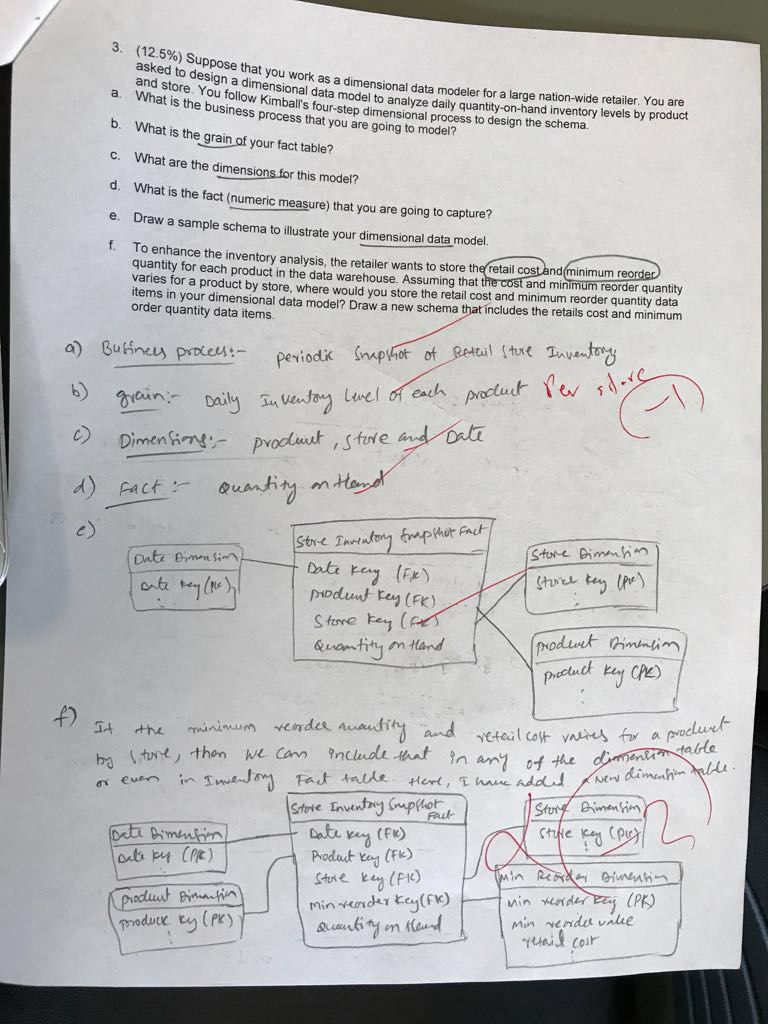 3. (12.5%) Suppose that you work as a dimensional data modeler for a large nation-wide retailer. You are
asked to design a dimensional data model to analyze daily quantity-on-hand inventory levels by product
and store. You follow Kimball's four-step dimensional process to design the schema.
a. What is the business process that you are going to model?
b. What is the grain of your fact table?
c. What are the dimensions for this model?
d. What is the fact (numeric measure) that you are going to capture?
e. Draw a sample schema to illustrate your dimensional data model.
f. To enhance the inventory analysis, the retailer wants to store the retail cost and minimum reorder
quantity for each product in the data warehouse. Assuming that the cost and minimum reorder quantity
varies for a product by store, where would you store the retail cost and minimum reorder quantity data
items in your dimensional data model? Draw a new schema that includes the retails cost and minimum
order quantity data items.
a) Business process:- periodic Snapshot of Retail Store Inventory
b) grain:- Daily Inventory Level of each product Per store
-1
c) Dimensions:- product, store and Date
d) Fact :- Quantity on Hand
e)
Store Inventory Snapshot Fact
Date key (FK)
product key (FK)
Store key (FK)
Quantity on Hand
Date Dimension
Date key (PK)
Store Dimension
Store key (PK)
product Dimension
product key (PK)
f) If the minimum reorder quantity and retail cost varies for a product
by store, then we can include that in any of the dimension table
or even in Inventory Fact table. Here, I have added a New dimension table.
Store Inventory Snapshot
Fact
Date key (FK)
Product key (FK)
Store key (FK)
Min reorder key (FK)
Quantity on Hand
Date Dimension
Date key (PK)
product Dimension
product key (PK)
Store Dimension
Store key (PK)
Min Reorder Dimension
Min reorder key (PK)
Min reorder value
retail cost